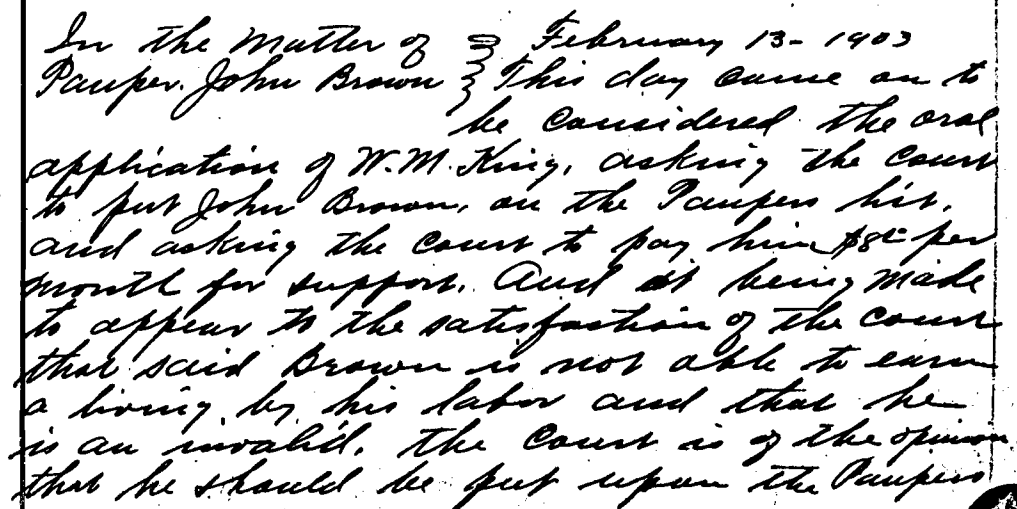 In the Matter of } February 13 - 1903
Pauper. John Brown } This day came on to
be considered the oral
application of W. M. King, asking the Court
to put John Brown, on the Paupers list,
and asking the Court to pay him $8.00 per
month for support. And it being made
to appear to the satisfaction of the Court
that said Brown is not able to earn
a living by his labor and that he
is an invalid. the Court is of the opinion
that he should be put upon the Paupers